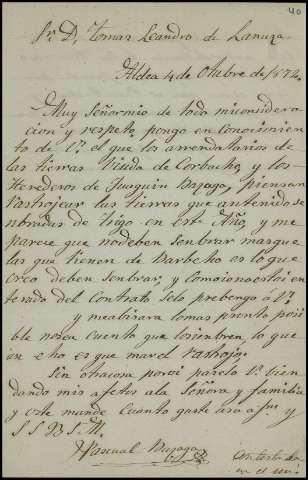 40
Sr. D. Tomas Leandro de Lanuza.
Aldea 4 de Otubre de 1874.
Muy Señormio de todo miconside ra
cion y respeto, pongo en Conocimien
to de V. el que los arrendatarios de
las tierras Viuda de Corbacho, y los
Herederos de Juaquin Bajago, piensan
Rastrojear las tierras que antenido se
nbradas de trigo en este Año, y me
pareie que nodeben senbrar masque
las que tienen de Barbecho es lo que
creo deben senbrar, y comoionoestoi en
terado del Contrato selo prebengo á V.
y meabisara lomas pronto posi
ble nosea cuento que losienbren, lo que
an echo es que marcel Rastrojo.
Sin otracosa porei parelo V. bien
dando mis afetos ala Señora y familia
y este mande Cuanto guste asu afmo y
S. S. B. S. M.
Pascual Bajago
Contestada
en el mismo